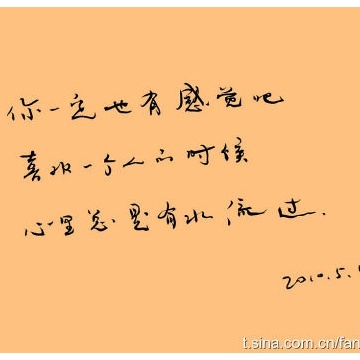 你一定也有感觉吧
喜欢一个人的时候
心里总是有水流过.
2010.5.
t.sina.com.cn/fan